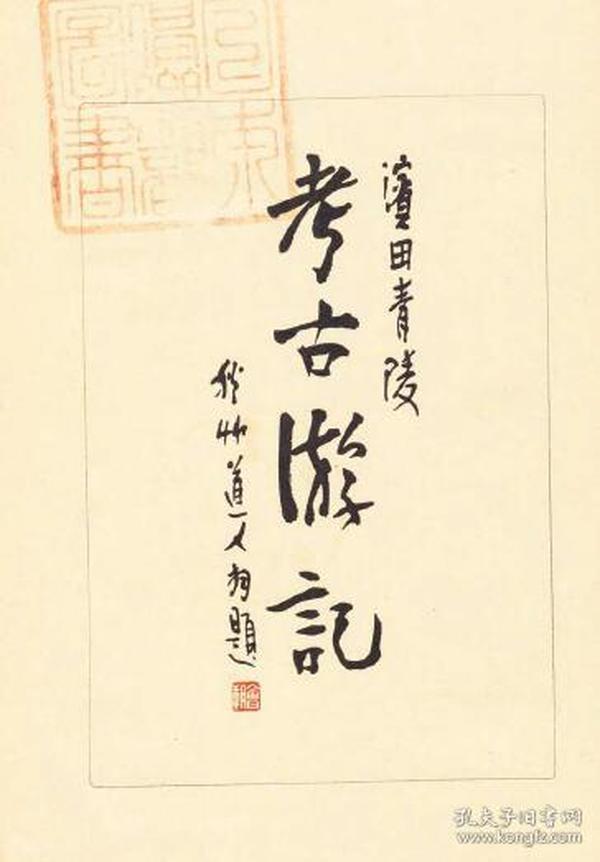 濱田青陵
考古游記
秋艸道人朔題
孔夫子旧书网
www.kongfz.com